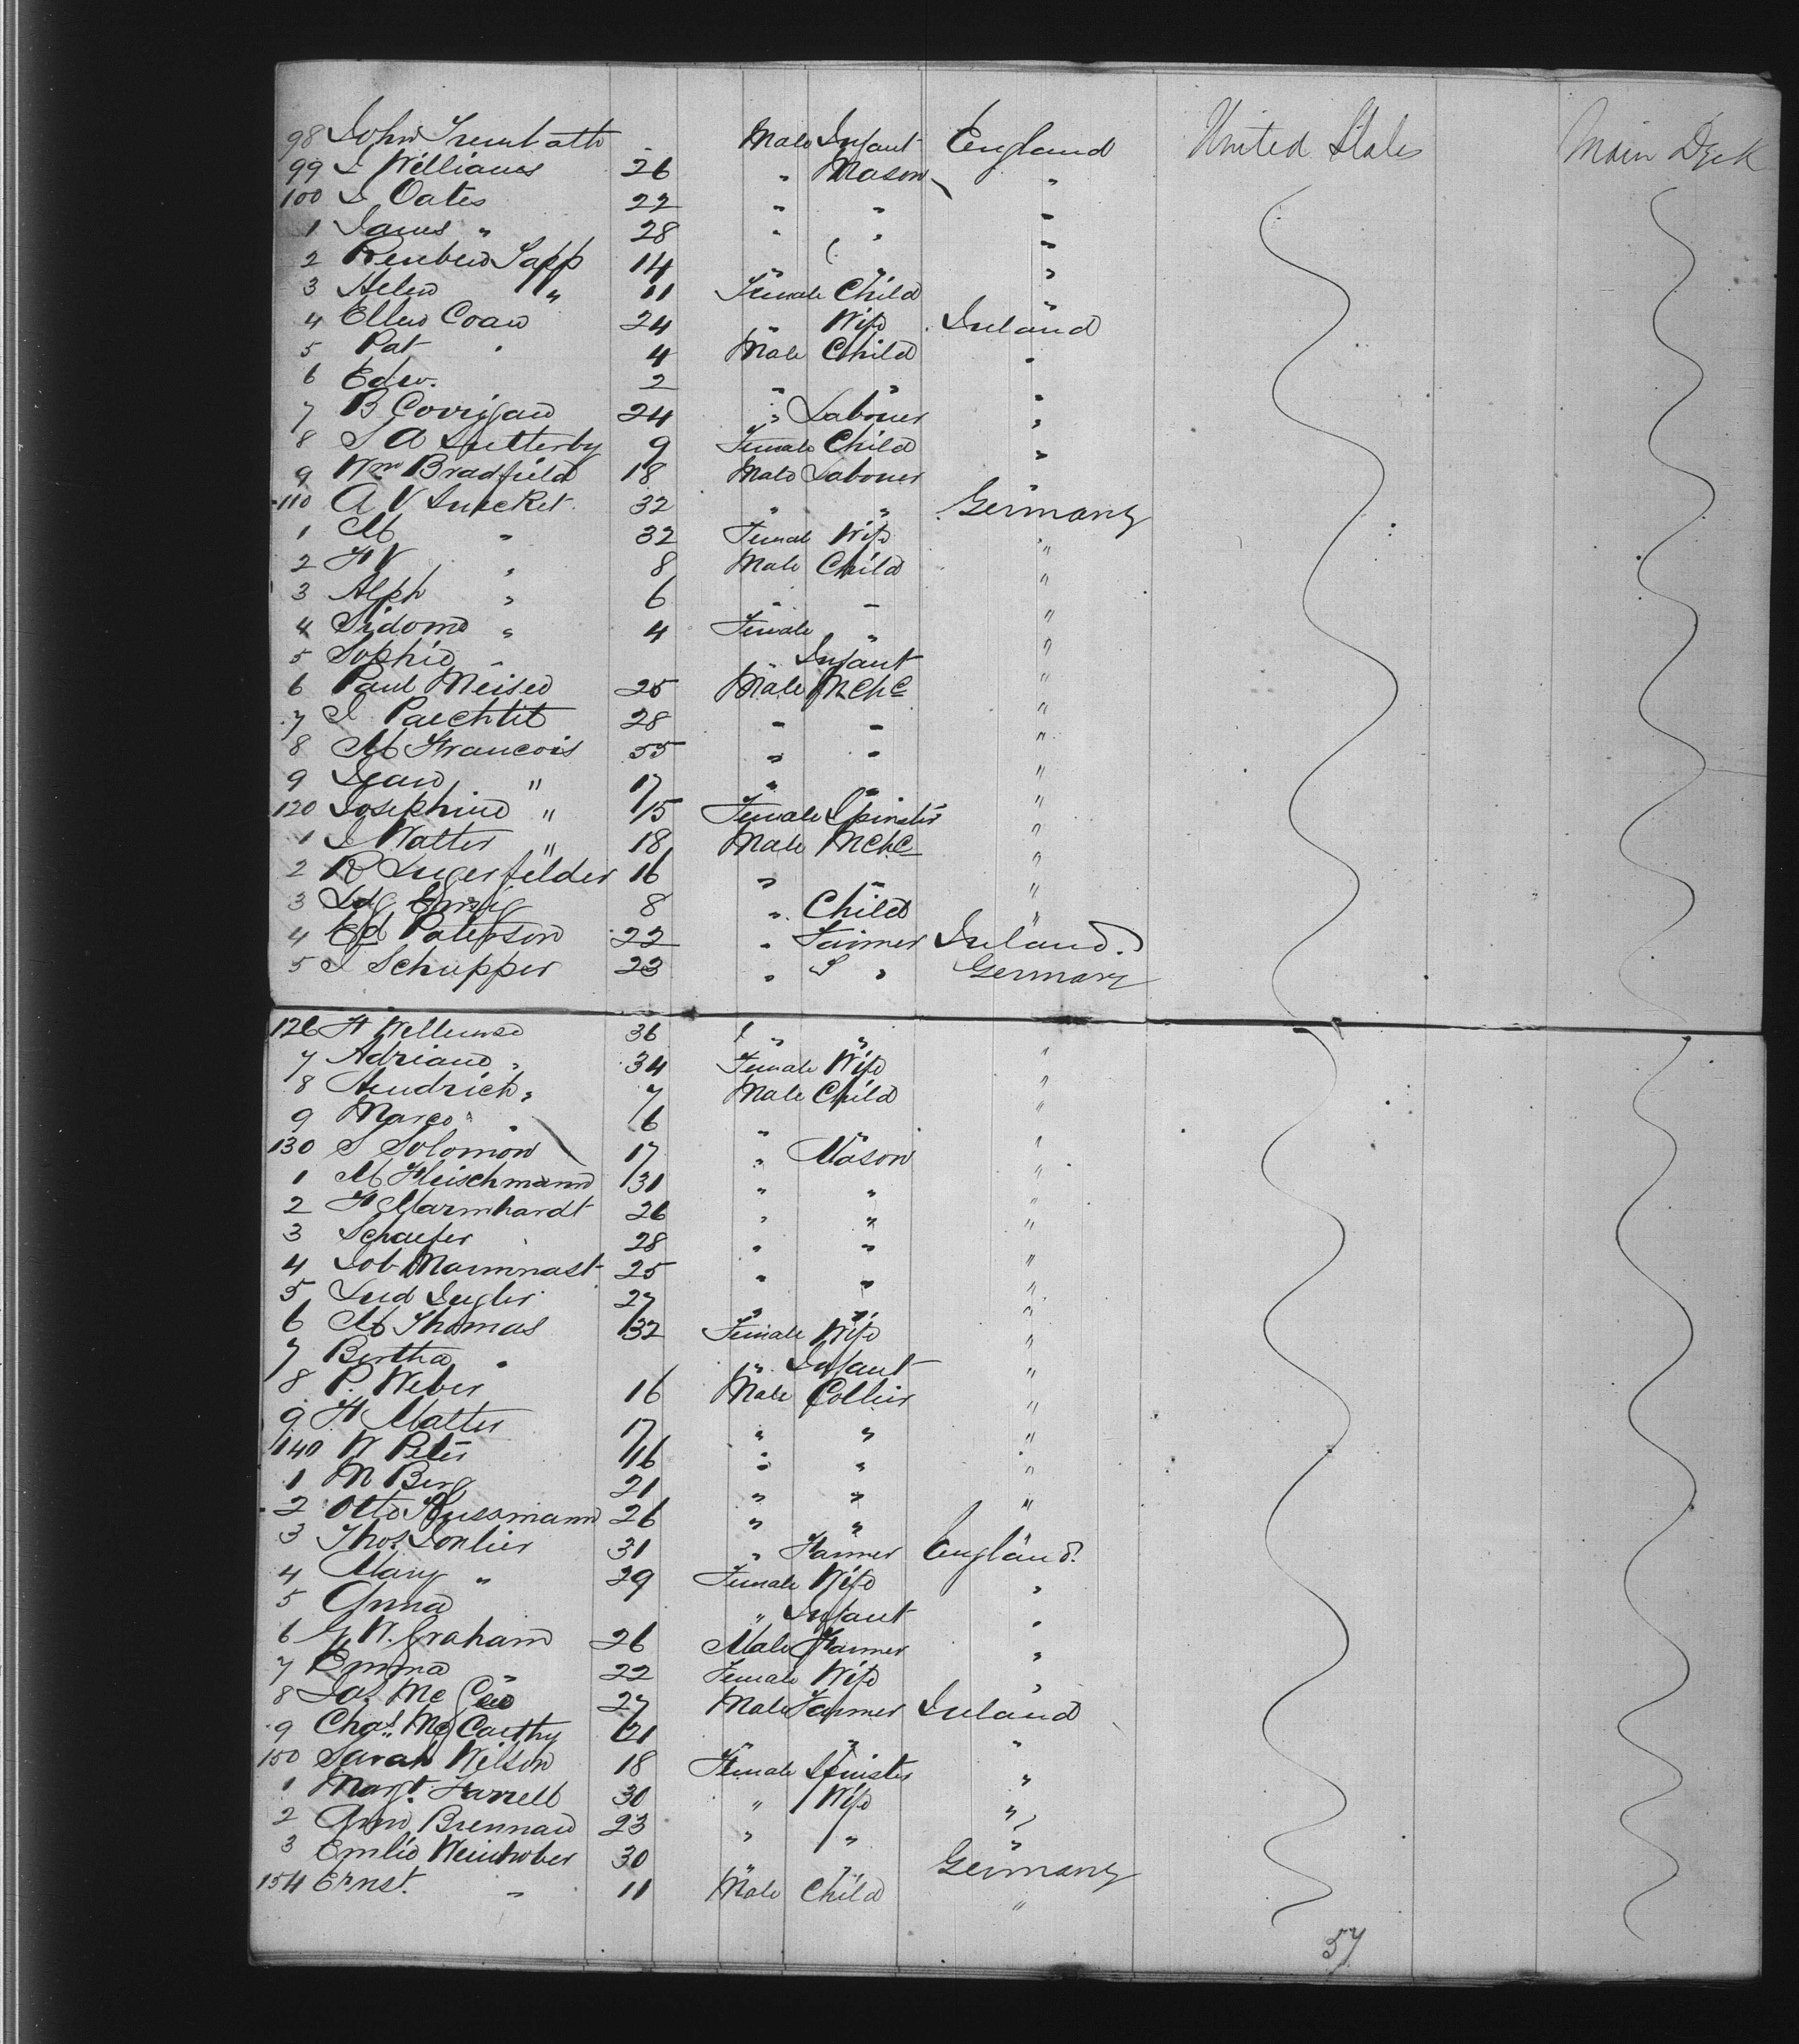 98 John Trembath - Male Infant England United States Main Deck
99 J Williams 26 " Mason "
100 J Oates 22 " " "
1 James " 28 " " "
2 Reuben Sapp 14 " " "
3 Helen " 11 Female Child "
4 Ellen Coan 24 " Wife Ireland
5 Pat " 4 Male Child "
6 Edw. 2 " " "
7 B Corrigan 24 " Laborer "
8 S A Lutterby 9 Female Child "
9 Wm Bradfield 18 Male Laborer "
110 A V 32 " " Germany
1 M " 32 Female Wife "
2 H V " 8 Male Child "
3 Alph " 6 " " "
4 Sidome " 4 Female " "
5 Sophie " Infant "
6 Paul Meisen 25 Male Mchc "
7 J 28 " " "
8 M Francois 55 " " "
9 Jean " 17 " " "
120 Josephine " 15 Female Spinster "
1 J Walter " 18 Male Mchc "
2 R 16 " " "
3 8 " Child "
4 Ed Paterson 22 " Farmer Ireland
5 J Schupper 23 " " Germany
126 H 36 " " "
7 Adriane " 34 Female Wife "
8 Hendrich " 7 Male Child "
9 Marco " 6 " " "
130 S Solomon 17 " Mason "
1 M Fleischmann 31 " " "
2 H Marmhardt 26 " " "
3 Schaefer 28 " " "
4 Job 25 " " "
5 27 " " "
6 M Thomas 32 Female Wife "
7 Bertha " " Infant "
8 P. Weber 16 Male Collier "
9 H Matter 17 " " "
140 W Peter 16 " " "
1 M Berg 21 " " "
2 Otto Hussmann 26 " " "
3 Thos 31 " Farmer England
4 Mary " 29 Female Wife "
5 Anna " Infant "
6 G. W. Graham 26 Male Farmer "
7 Emma " 22 Female Wife "
8 Jas Mc Gee 27 Male Farmer Ireland
9 Chas. McCarthy 21 " " "
150 Sarah Wilson 18 Female Spinster "
1 Margt. Farrell 30 " Wife "
2 Ann Brennan 23 " " "
3 Emlie Weinhober 30 " " Germany
154 Ernst. " 11 Male Child "
57